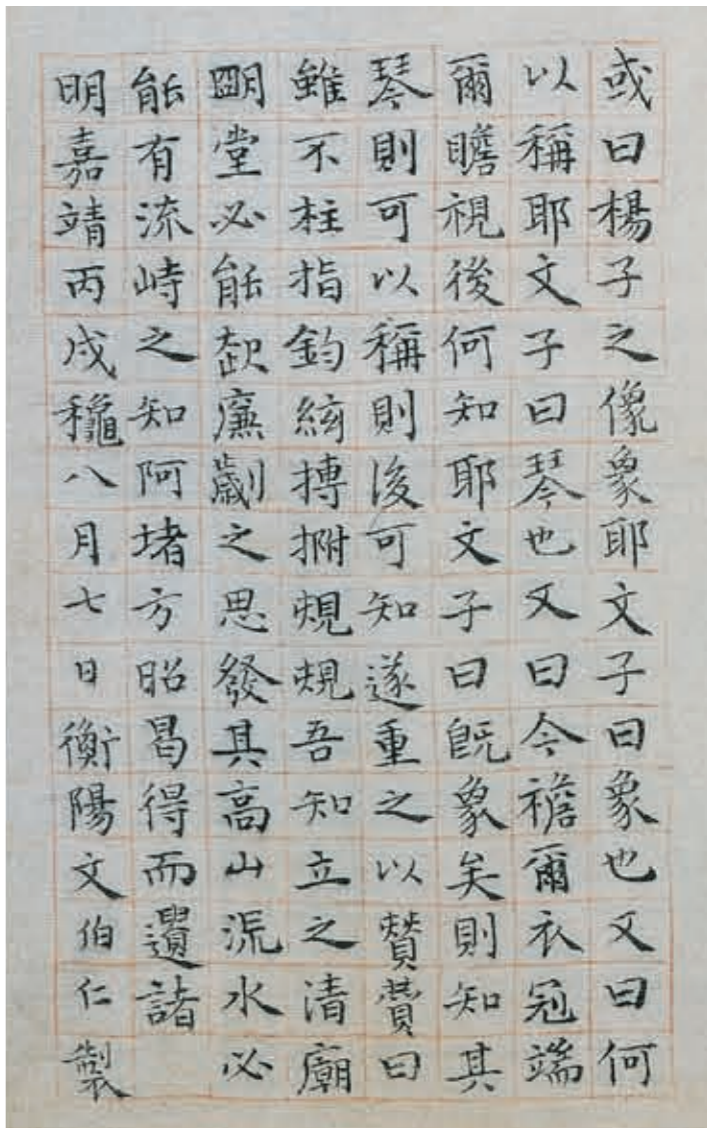 或曰楊子之像象耶文子曰象也又曰何
以稱耶文子曰琴也又曰今襜爾衣冠端
爾瞻視後何知耶文子曰旣象矣則知其
琴則可以稱則後可知遂重之以贊贊曰
雖不柱指鈞絃搏拊爮爮吾知立之清廟
朙堂必能㪣廉劌之思發其高山流水必
能有流峙之知阿堵方昭曷得而遺諸
明嘉靖丙戌龝八月七日衡陽文伯仁製